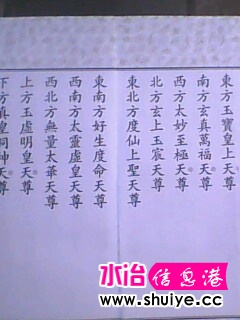 東方玉寶皇上天尊
南方玄真萬福天尊
西方太妙至極天尊
北方玄上玉宸天尊
東北方度仙上聖天尊
東南方好生度命天尊
西南方太靈虛皇天尊
西北方無量太華天尊
上方玉虛明皇天尊
下方真皇洞神天尊
水冶信息港
www.shuiye.cc